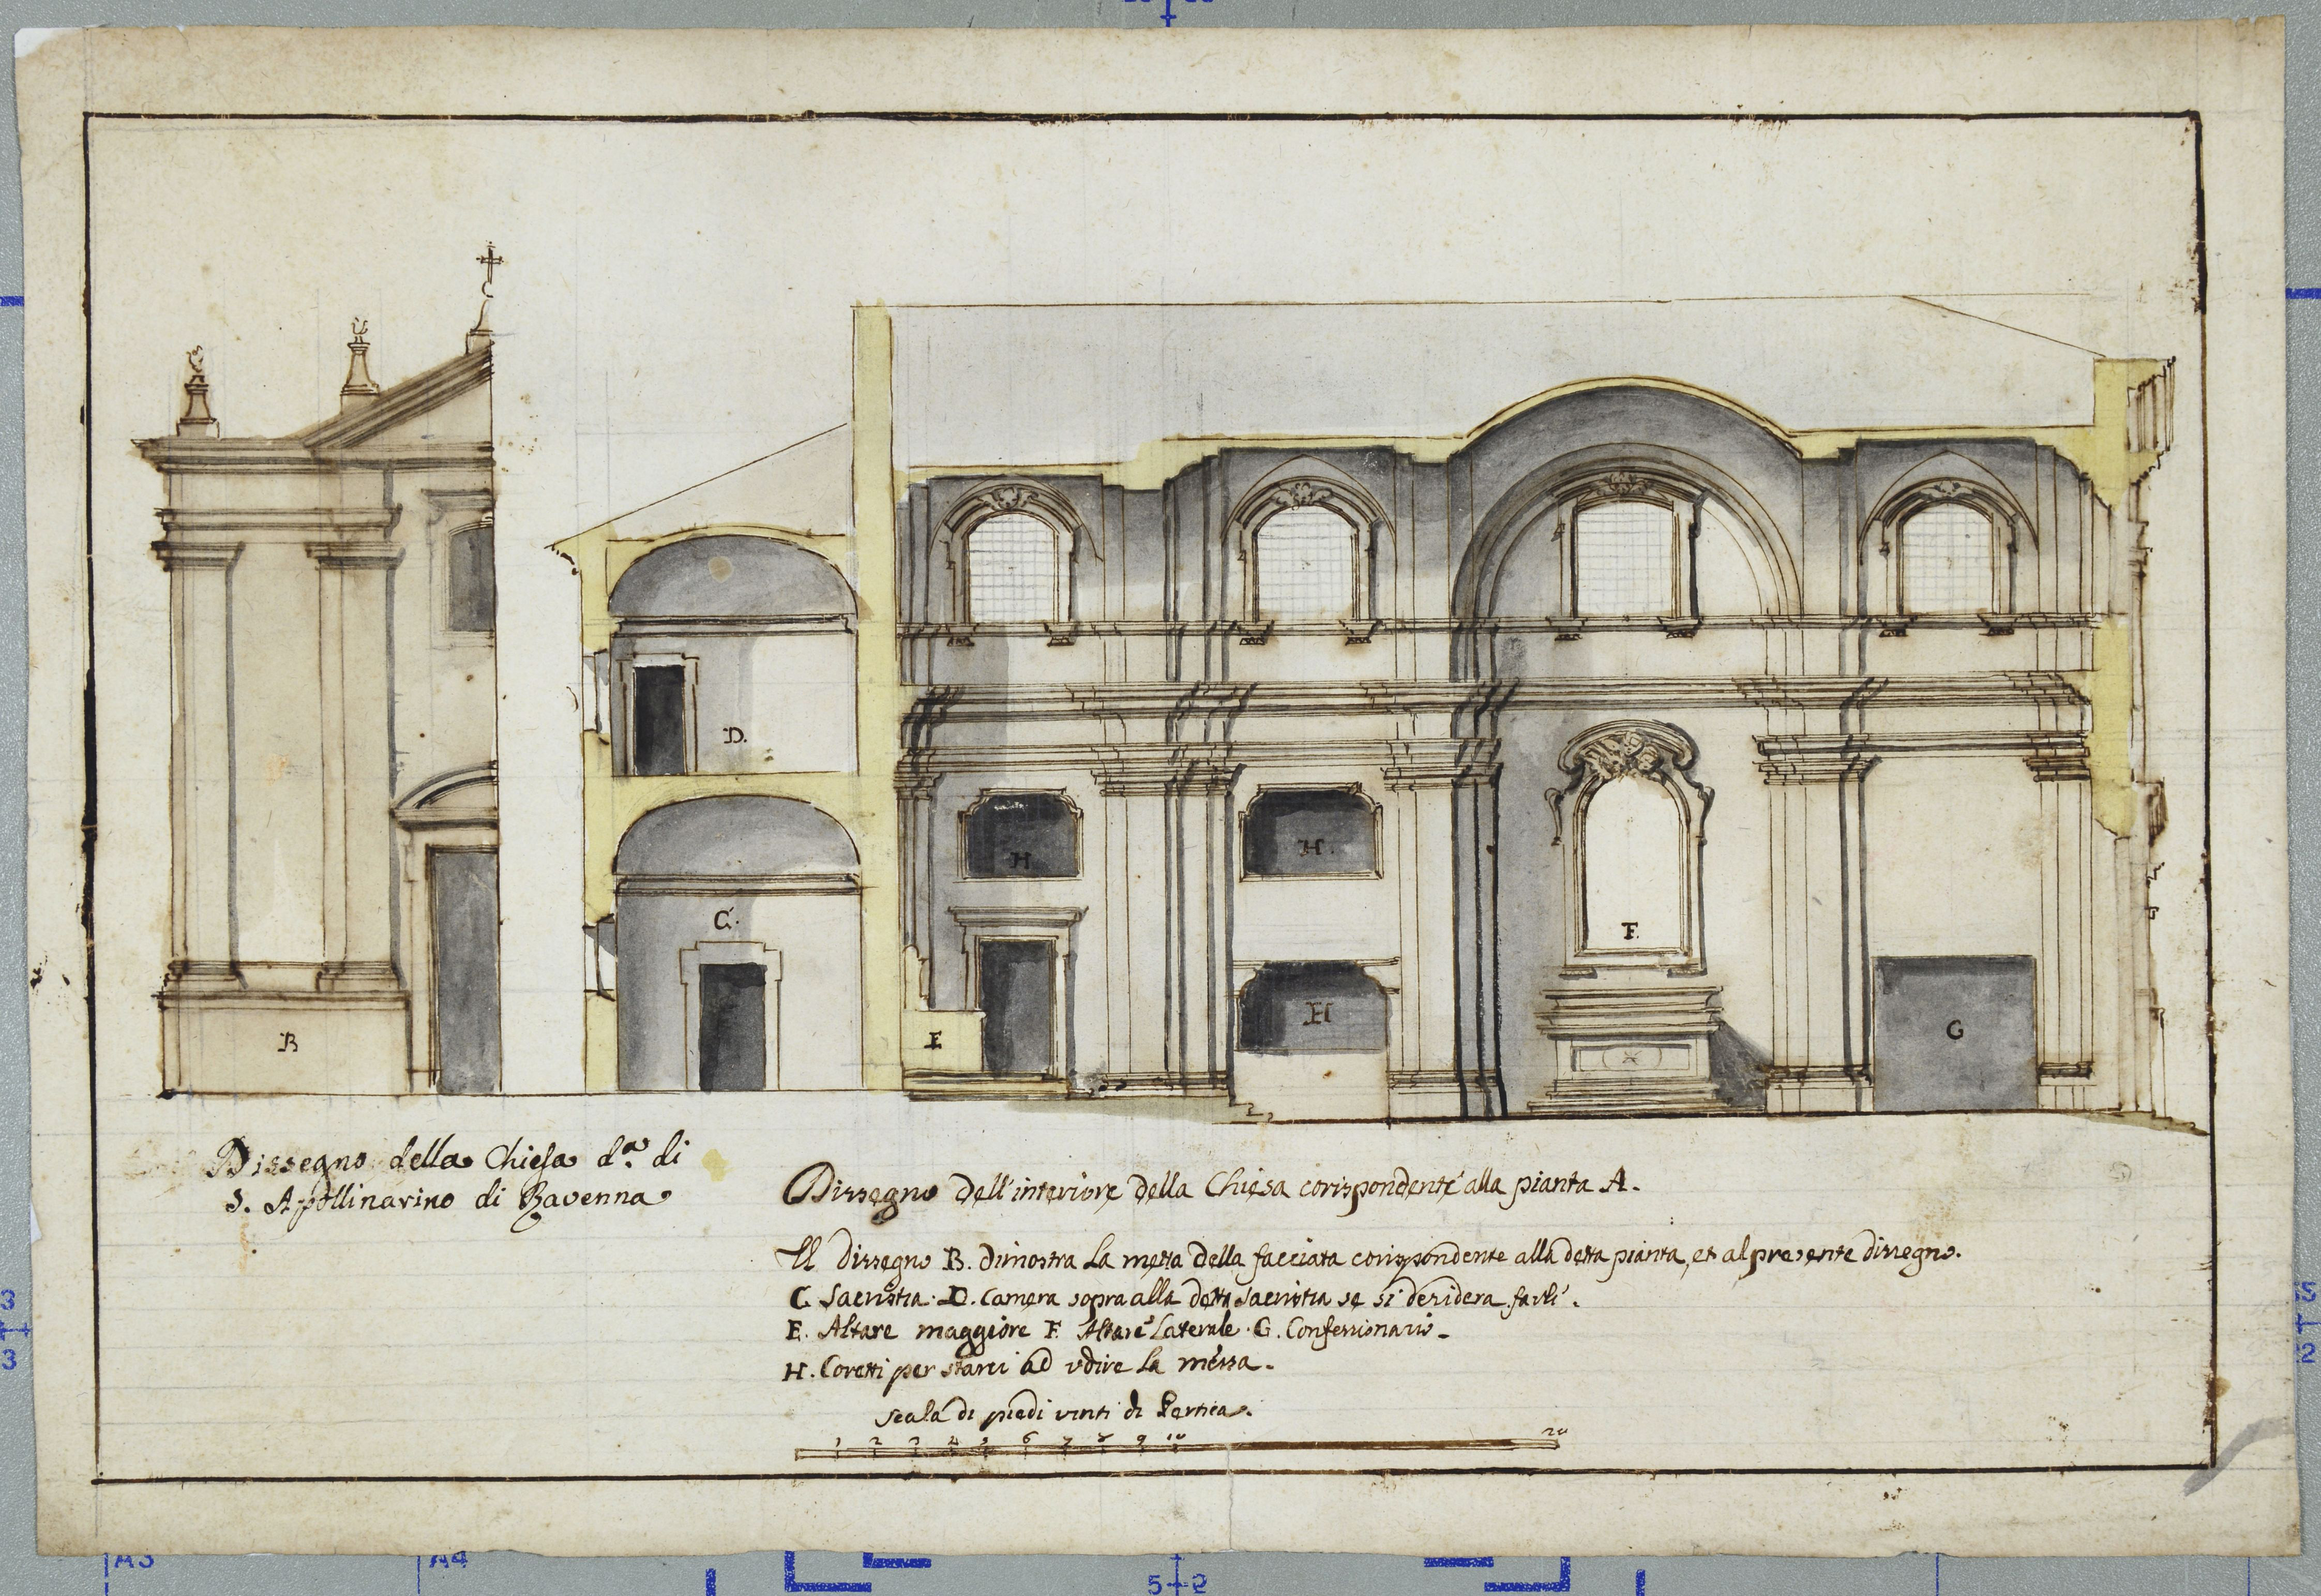 B
D.
C.
H
H.
H
E
F.
G
Dissegno della Chiesa d.ª di
S. Apollinarino di Ravenna
Dissegno dell'interiore della Chiesa corispondente alla pianta A.
Il dissegno B. dimostra la metta della facciata corispondente alla detta pianta, et al presente dissegno.
C. Sacristia. D. Camera sopra alla detta Sacristia se si desidera farli.
E. Altare maggiore F. Altare Laterale. G. Confessionario
H. Coretti per starci ad udire la messa.
Scala di piedi vinti di Pertica.
1 2 3 4 5 6 7 8 9 10 20
A3 A4